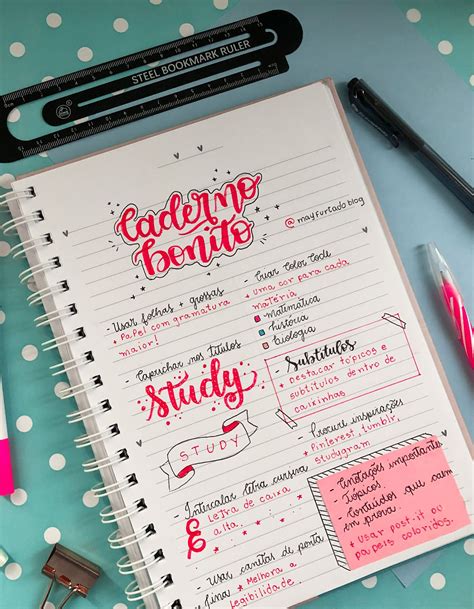 STEEL BOOKMARK RULER
caderno
bonito
@mayfurtado.blog
- Usar folhas + grossas
+ Papel com gramatura
maior!
- Criar color code
+ uma cor para cada
matéria
matemática
história
biologia
- Caprichar nos títulos
Study
- Subtítulos
+ Destacar tópicos e
subtítulos dentro de
caixinhas
STUDY
- Procure inspirações
+ Pinterest, tumblr,
studygram
- Intercalar letra cursiva
E Letra de caixa
alta.
- Anotações importantes
- Tópicos.
- Conteúdos que caem
em prova.
+ Usar post.it ou
papéis coloridos.
- Usar canetas de ponta
fina * Melhora a
legibilidade